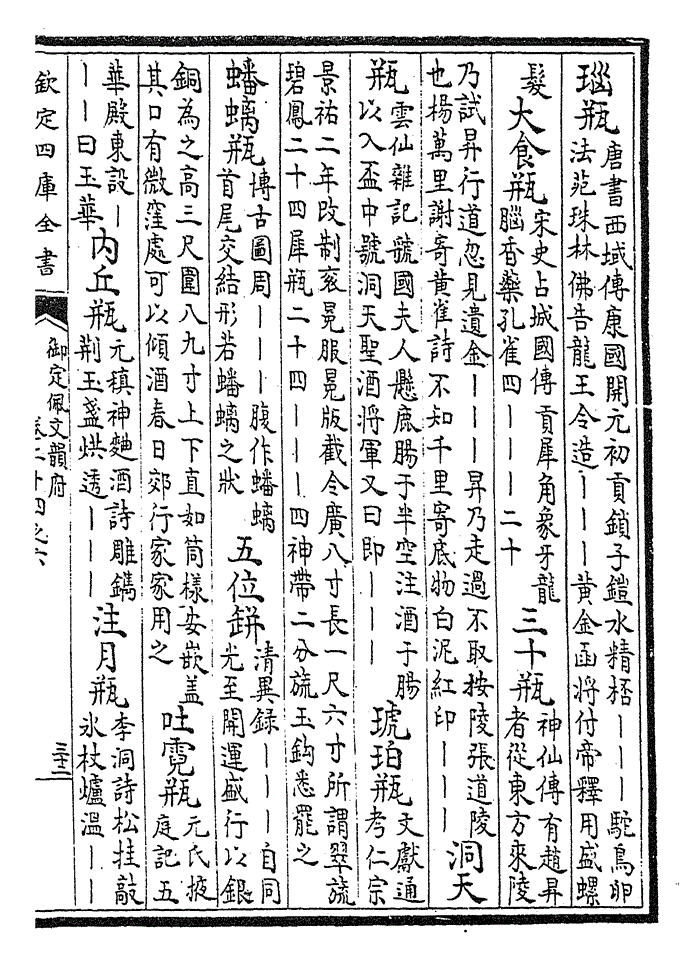 瑙瓶
唐書西域傳康國開元初貢鎖子鎧水精桮｜｜｜駝鳥卵
法苑珠林佛告龍王令造｜｜｜黃金函將付帝釋用盛螺
髮
大食瓶
宋史占城國傳貢犀角象牙龍
腦香藥孔雀四｜｜｜二十
三十瓶
神仙傳有趙昇
者從東方來陵
乃試昇行道忽見遺金｜｜｜昇乃走過不取按陵張道陵
也楊萬里謝寄黃雀詩不知千里寄底物白泥紅印｜｜｜
洞天
瓶
雲仙雜記虢國夫人懸鹿腸于半空注酒于腸
以入盃中號洞天聖酒將軍又曰即｜｜｜
琥珀瓶
文獻通
考仁宗
景祐二年改制衮冕服冕版截令廣八寸長一尺六寸所謂翠旒
碧鳳二十四犀瓶二十四｜｜｜四神帶二分旒玉鈎悉罷之
蟠螭瓶
博古圖周｜｜｜腹作蟠螭
首尾交結形若蟠螭之狀
五位缾
清異録｜｜｜自同
光至開運盛行以銀
銅為之高三尺圍八九寸上下直如筒樣安嵌蓋
其口有微窪處可以傾酒春日郊行家家用之
吐霓瓶
元氏掖
庭記五
華殿東設｜
｜｜曰玉華
內丘瓶
元稹神麯酒詩雕鐫
荆玉盞烘透｜｜｜
注月瓶
李洞詩松挂敲
氷杖爐溫｜｜
欽定四庫全書
御定佩文韻府
卷二十四之六
三十二